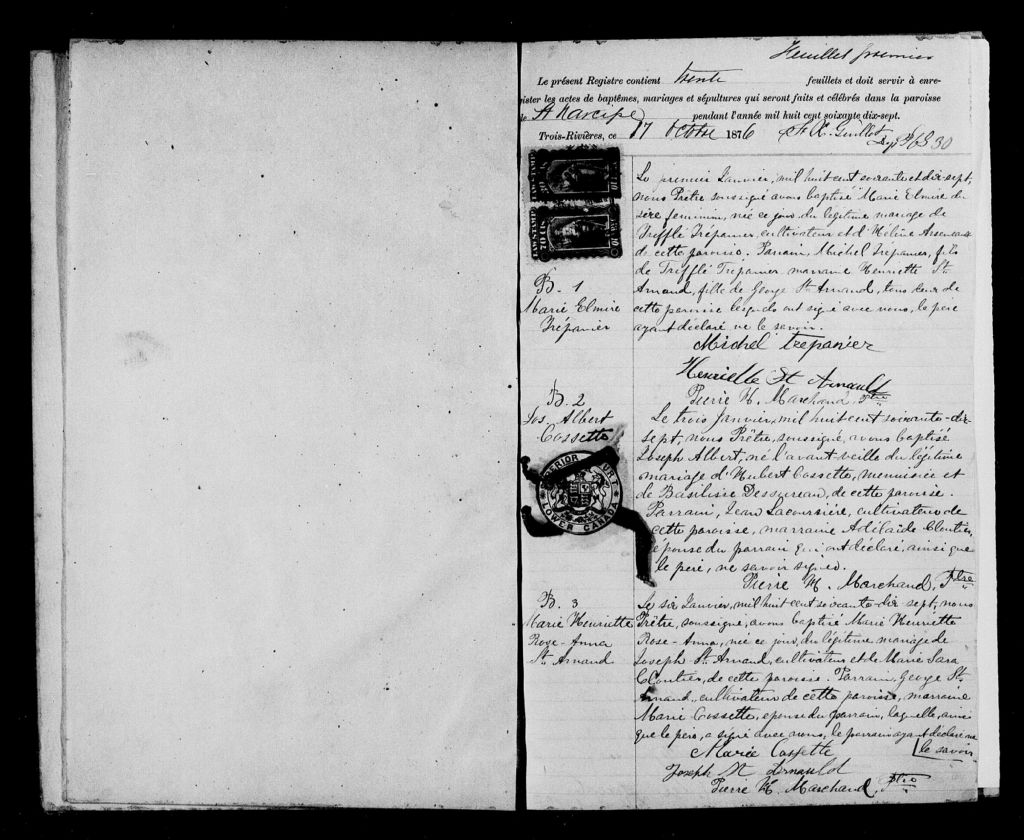 Feuillet premier
Le présent Registre contient trente feuillets et doit servir à enre-
gister les actes de baptêmes, mariages et sépultures qui seront faits et célébrés dans la paroisse
St Narcisse pendant l'année mil huit cent soixante dix-sept.
Trois-Rivières, ce 17 Octbre 1876
LAW STAMP
70 CTS
B. 1
Marie Elmire
Trépanier
Le premier Janvier, mil huit cent soixante et dix-sept,
nous Prêtre soussigné avons baptisé Marie Elmire du
sexe feminin, née ce jour du légitime mariage de
Trifflé Trépanier, cultivateur et d'Hélène Arsenault
de cette paroisse. Parrain, Michel Trépanier, fils
de Trifflé Trépanier marraine Henriette St
Arnaud, fille de George St. Arnaud, tous deux de
cette paroisse lesquels ont signé avec nous, le père
ayant déclaré ne le savoir.
Michel trepanier
Henriette St Arnault
Pierre H. Marchand, Ptre
B. 2
Jos. Albert
Cossette
SUPERIOR COURT
LOWER CANADA
Le trois Janvier, mil huit cent soixante-dix-
sept, nous Prêtre, soussigné, avons baptisé
Joseph Albert, né l'avant veille du légitime
mariage d'Hubert Cossette, menuisier et
de Basilisse Dessureau, de cette paroisse.
Parrain, Jean Lacoursière, cultivateur de
cette paroisse, marraine Adélaide Cloutier,
épouse du parrain qui ont déclaré, ainsi que
le père, ne savoir signer.
Pierre H. Marchand, Ptre
B. 3
Marie Henriette
Rose-Anna
St. Arnaud
Le six Janvier, mil huit cent soixante-dix sept, nous
Prêtre, soussigné, avons baptisé Marie Henriette
Rose-Anna, née ce jour, du légitime mariage de
Joseph St. Arnaud, cultivateur et de Marie Sara
Cloutier, de cette paroisse. Parrain, George St.
Arnaud, cultivateur de cette paroisse, marraine
Marie Cossette, epouse du parrain, laquelle, ainsi
que le pere, a signé avec nous, le parrain ayant déclaré ne
le savoir
Marie Cossette
Joseph St Arnauld
Pierre H. Marchand, Ptre